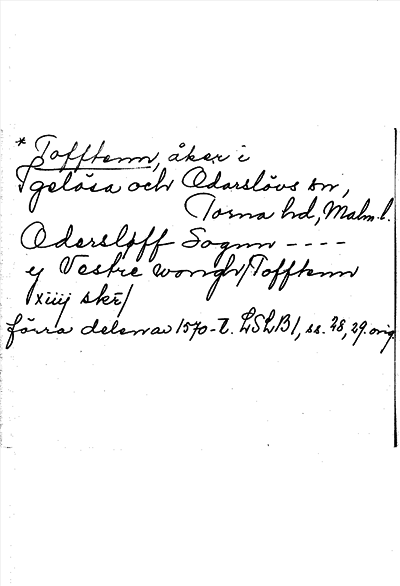 * Tofftenn, åker i
Igelösa och Odarslövs sn,
Torna hd, Malm. l.
Odersløff Sognn ----
ij Vestre wongh / Tofftenn
xiiij skr /
förra delen av 1570-t. LSLB 1, ss. 28, 29. orig.